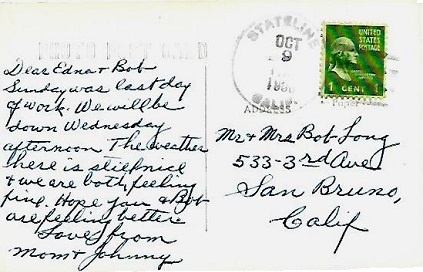 PHOTO POST CARD
Dear Edna & Bob
Sunday was last day
of work. We will be
down Wednesday
afternoon The weather
here is still nice
& we are both feeling
fine. Hope you & Bob
are feeling better.
Loves from
Mom & Johnny
STATELINE
OCT
9
CALIF.
UNITED
STATES
POSTAGE
1 CENT 1
ADDRESS
Mr & Mrs Bob Long
533-3rd Ave
San Bruno,
Calif